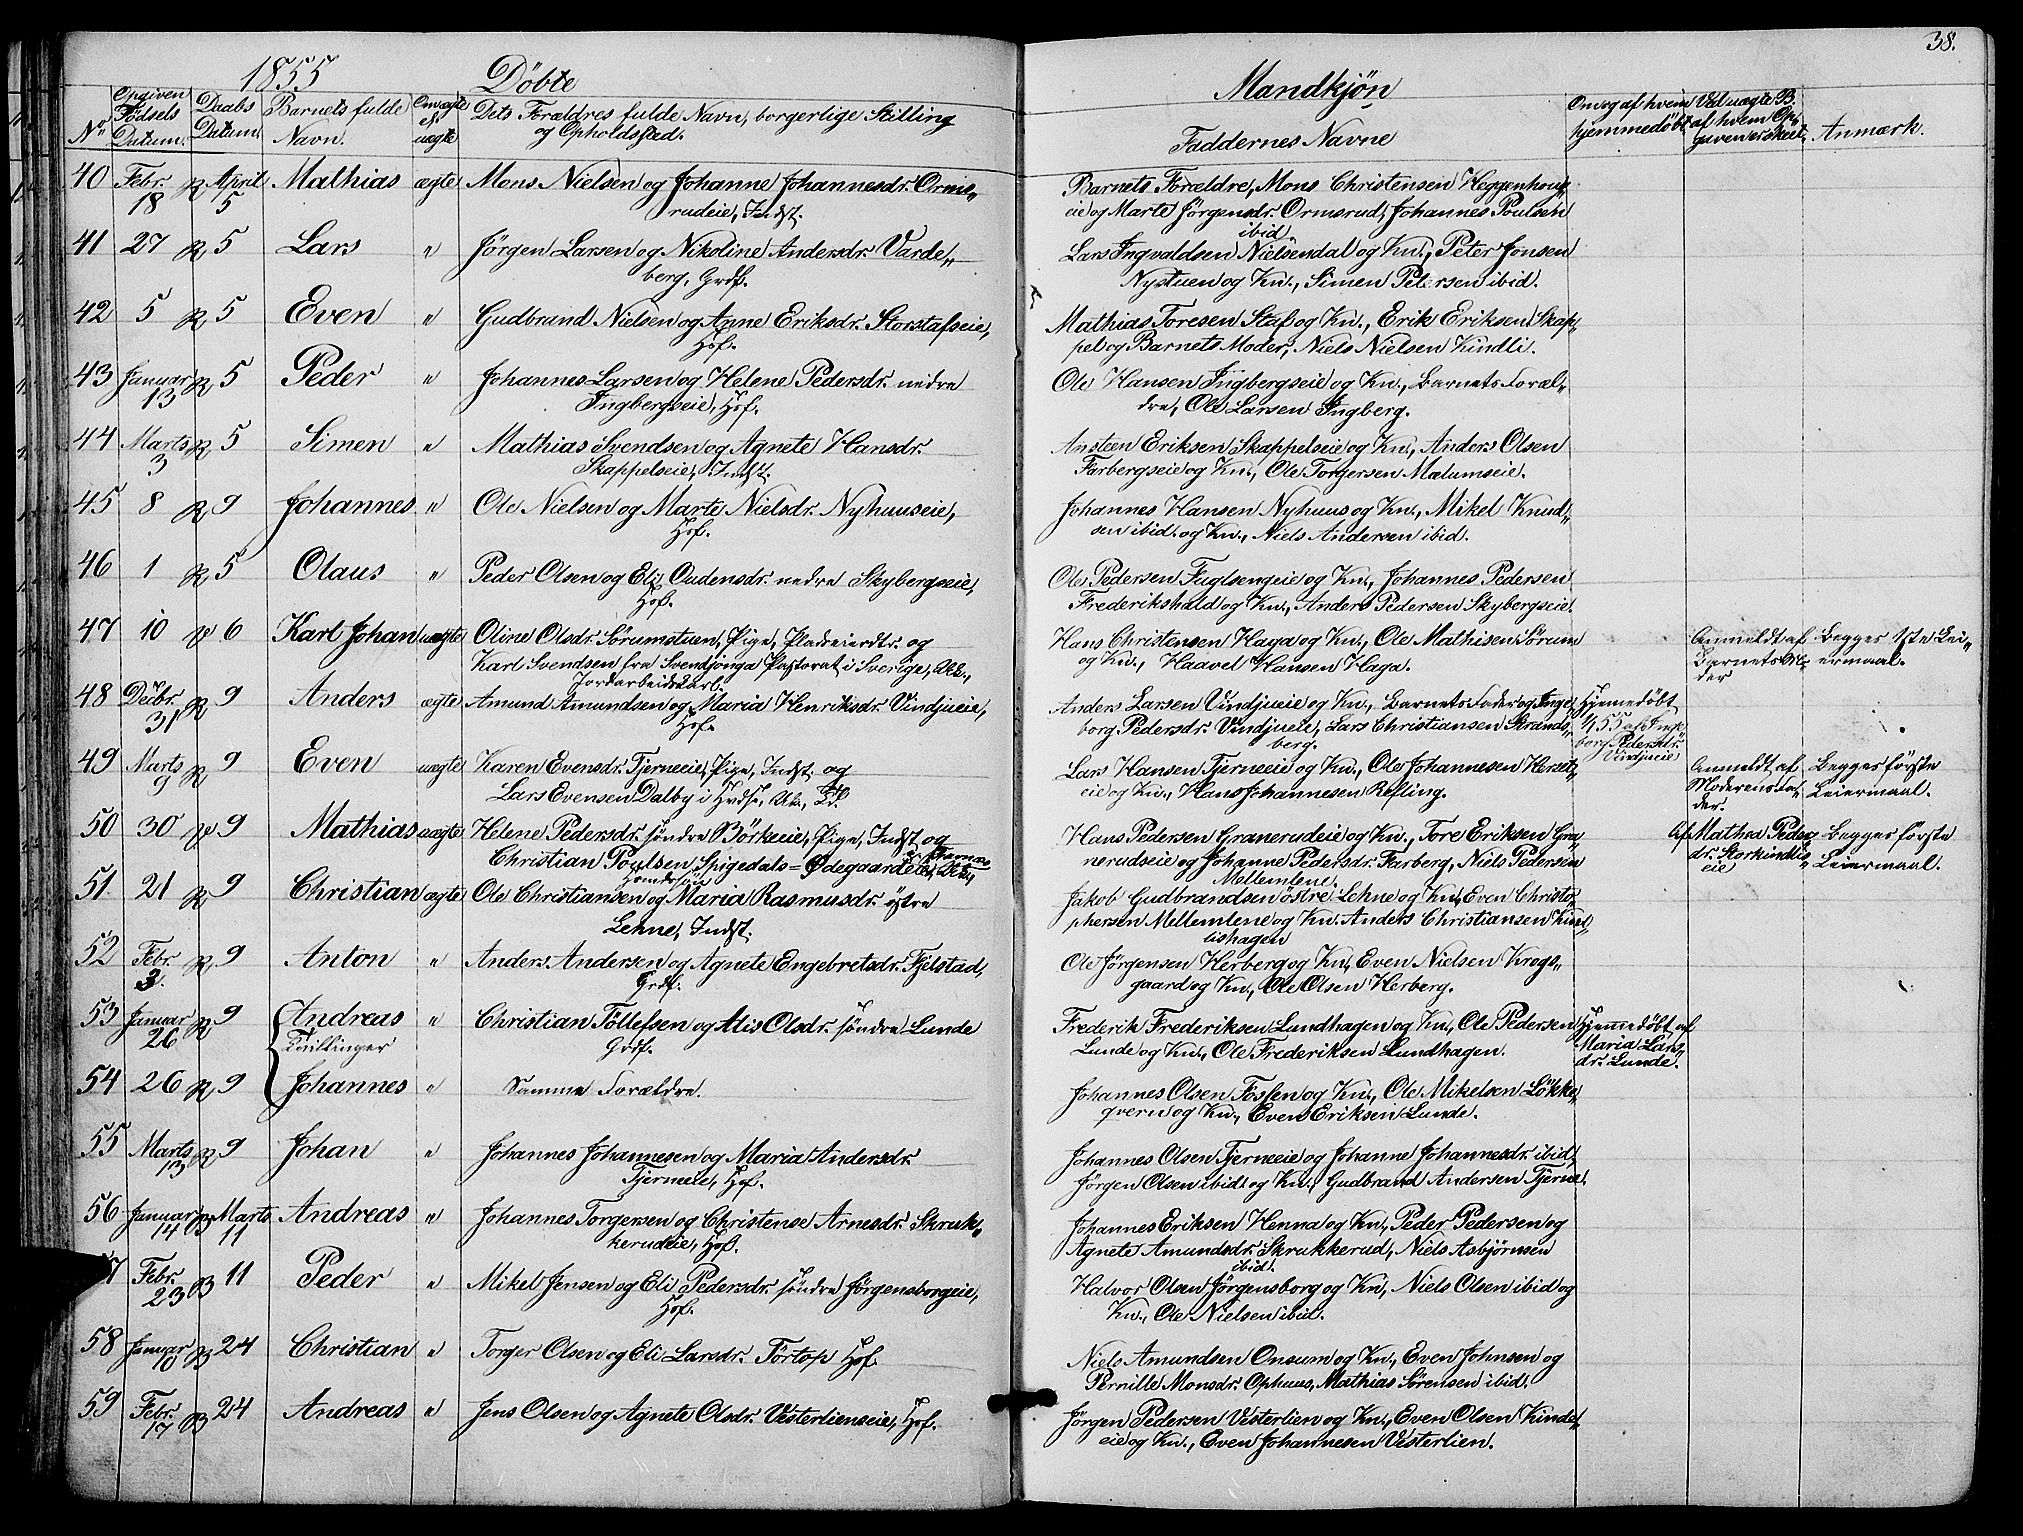 1855 Döbte
Mandkjön
38.
No Opgiven Fødsels Datum. Daabs Datum. Barnets fulde Navn. Om ægte el uægte Dets Forældres fulde Navn, borgerlige Stilling og Opholdssted. Faddernes Navne Om og af hvem hjemmedöbt. Ved uægte B. af hvem Opgiven er skeet. Anmærk.
40 Febr. 18 R April 5 Mathias ægte Mons Nielsen og Johanne Johannesdr. Orms„
rudeie, Indst.
Barnets Forældre, Mons Christensen Heggenhou„
eie og Marte Jörgensdr. Ormsrud, Johannes Poulsen
ibid.
41 27 R 5 Lars " Jörgen Larsen og Nikoline Andersdr. Varde„
berg, Grdf.
Lars Ingvaldsen Nielsendal og Kn., Peter Jonsen
Nystuen og Kn., Simen Petersen ibid.
42 5 R 5 Even " Gudbrand Nielsen og Anne Eriksdr. Storstafseie,
Hof.
Mathias Toresen Staf og Kn., Erik Eriksen Skap„
pel og Barnets Moder, Niels Nielsen Kindli.
43 Januar 13 R 5 Peder " Johannes Larsen og Helene Pedersdr. nedre
Ingbergseie, Hof.
Ole Hansen Ingbergseie og Kn., Barnets Foræl„
dre, Ole Larsen Ingberg.
44 Marts 3 R 5 Simen " Mathias Svendsen og Agnete Hansdr.
Skappelseie, Indst.
Ansteen Eriksen Skappelseie og Kn., Anders Olsen
Farbergseie og Kn., Ole Torgersen Mælumseie.
45 8 R 9 Johannes " Ole Nielsen og Marte Nielsdr. Nyhuuseie,
Hof.
Johannes Hansen Nyhuus og Kn., Mikel Knud„
sen ibid. og Kn., Niels Andersen ibid.
46 1 R 5 Olaus " Peder Olsen og Eli Oudensdr. nedre Skybergseie,
Hof.
Ole Pedersen Fuglsengeie og Kn., Johannes Pedersen
Frederikshald og Kn., Anders Pedersen Skybergseie.
47 10 6 Karl Johan uægte Oline Olsdr. Sørumstuen, Pige, Pladseierdtr. og
Karl Svendsen fra Svendjonga Pastorat i Sverige, Uk.,
Jordarbeidskarl.
Hans Christensen Haga og Kn., Ole Mathisen Sörum
og Kn., Haavel Hansen Haga.
Anmeldt af
Barnets
der
Begges 1ste Lei„
ermaal.
48 Decbr. 31 R 9 Anders ægte Amund Amundsen og Maria Henriksdr. Vindjueie,
Hof.
Anders Larsen Vindjueie og Kn., Barnets Fader og Inge„
borg Pedersdr. Vindjueie, Lars Christiansen Strands„
berg.
Hjemmedöbt
1/1 55 af Inge„
borg Pedersdr.
Vindjueie
49 Marts 9 R 9 Even uægte Karen Evensdr. Tjerneeie, Pige, Indst. og
Lars Evensen Dalby i Hvdsf., Uk.,
Lars Hansen Tjerneeie og Kn., Ole Johannesen Herset„
eie og Kn., Hans Johannesen Refling.
Anmeldt af
Moderens Fa„
der.
Begges förste
Leiermaal.
50 30 9 Mathias uægte Helene Pedersdr. söndre Börkeeie, Pige, Indst. og
Christian Poulsen Spigedals=Ödegaardeie, Uk.,
Hans Pedersen Granerudeie og Kn., Tore Eriksen Gra„
nerudseie og Johanne Pedersdr. Farberg, Niels Pedersen
Mellemlene.
Af Mathea Peders„
dr. Storkindlis„
eie
Begges förste
Leiermaal.
51 21 R 9 Christian ægte Ole Christiansen og Maria Rasmusdr. östre
Lehne, Indst.
Jakob Gudbrandsen östre Lehne og Kn., Even Christo„
phersen Mellemlene og Kn. Anders Christiansen Kind„
lishagen
52 Febr. 3. R 9 Anton " Anders Andersen og Agnete Engebretsdr. Fjelstad,
Grdf.
Ole Jörgensen Herberg og Kn., Even Nielsen Krogs„
gaard og Kn., Ole Olsen Herberg.
53 Januar 26 R 9 Andreas " Christian Töllefsen og Alis Olsdr. söndre Lunde
Tvillinger Grdf.
Frederik Frederiksen Lundhagen og Kn., Ole Pedersen
Lunde og Kn., Ole Frederiksen Lundhagen.
Hjemmedöbt af
Maria Lars„
dr. Lunde.
54 26 R 9 Johannes " Samme Forældre.
Johannes Olsen Fossen og Kn., Ole Mikelsen Lökke„
qvern og Kn., Even Eriksen Lunde.
55 Marts 13 R 9 Johan " Johannes Johannesen og Maria Andersdr.
Tjerneeie, Hof.
Johannes Olsen Tjerneeie og Johanne Johannesdr. ibid,
Jörgen Olsen ibid. og Kn., Gudbrand Andersen Tjerne.
56 Januar 14 B Marts 11 Andreas " Johannes Torgersen og Christense Arnesdr. Skruk„
kerudeie, Hof.
Johannes Eriksen Henna og Kn., Peder Pedersen og
Agnete Amundsdr. Skrukkerud, Niels Asbjörnsen
ibid.
57 Febr. 23 B 11 Peder " Mikel Jensen og Eli Pedersdr. söndre Jörgensborgeie,
Hof.
Halvor Olsen Jörgensborg og Kn., Niels Olsen ibid og
Kn., Ole Nielsen ibid.
58 Januar 10 B 24 Christian " Torger Olsen og Eli Larsdr. Tortop Hof
Niels Amundsen Onsum og Kn., Even Johnsen og
Pernille Monsdr. Ophuus, Mathias Sörensen ibid.
59 Febr. 17 B 24 Andreas " Jens Olsen og Agnete Olsdr. Vesterlienseie, Hof.
Jörgen Pedersen Vesterlien og Kn., Even Olsen Kinde„
eie og Kn., Even Johannesen Vesterlien.